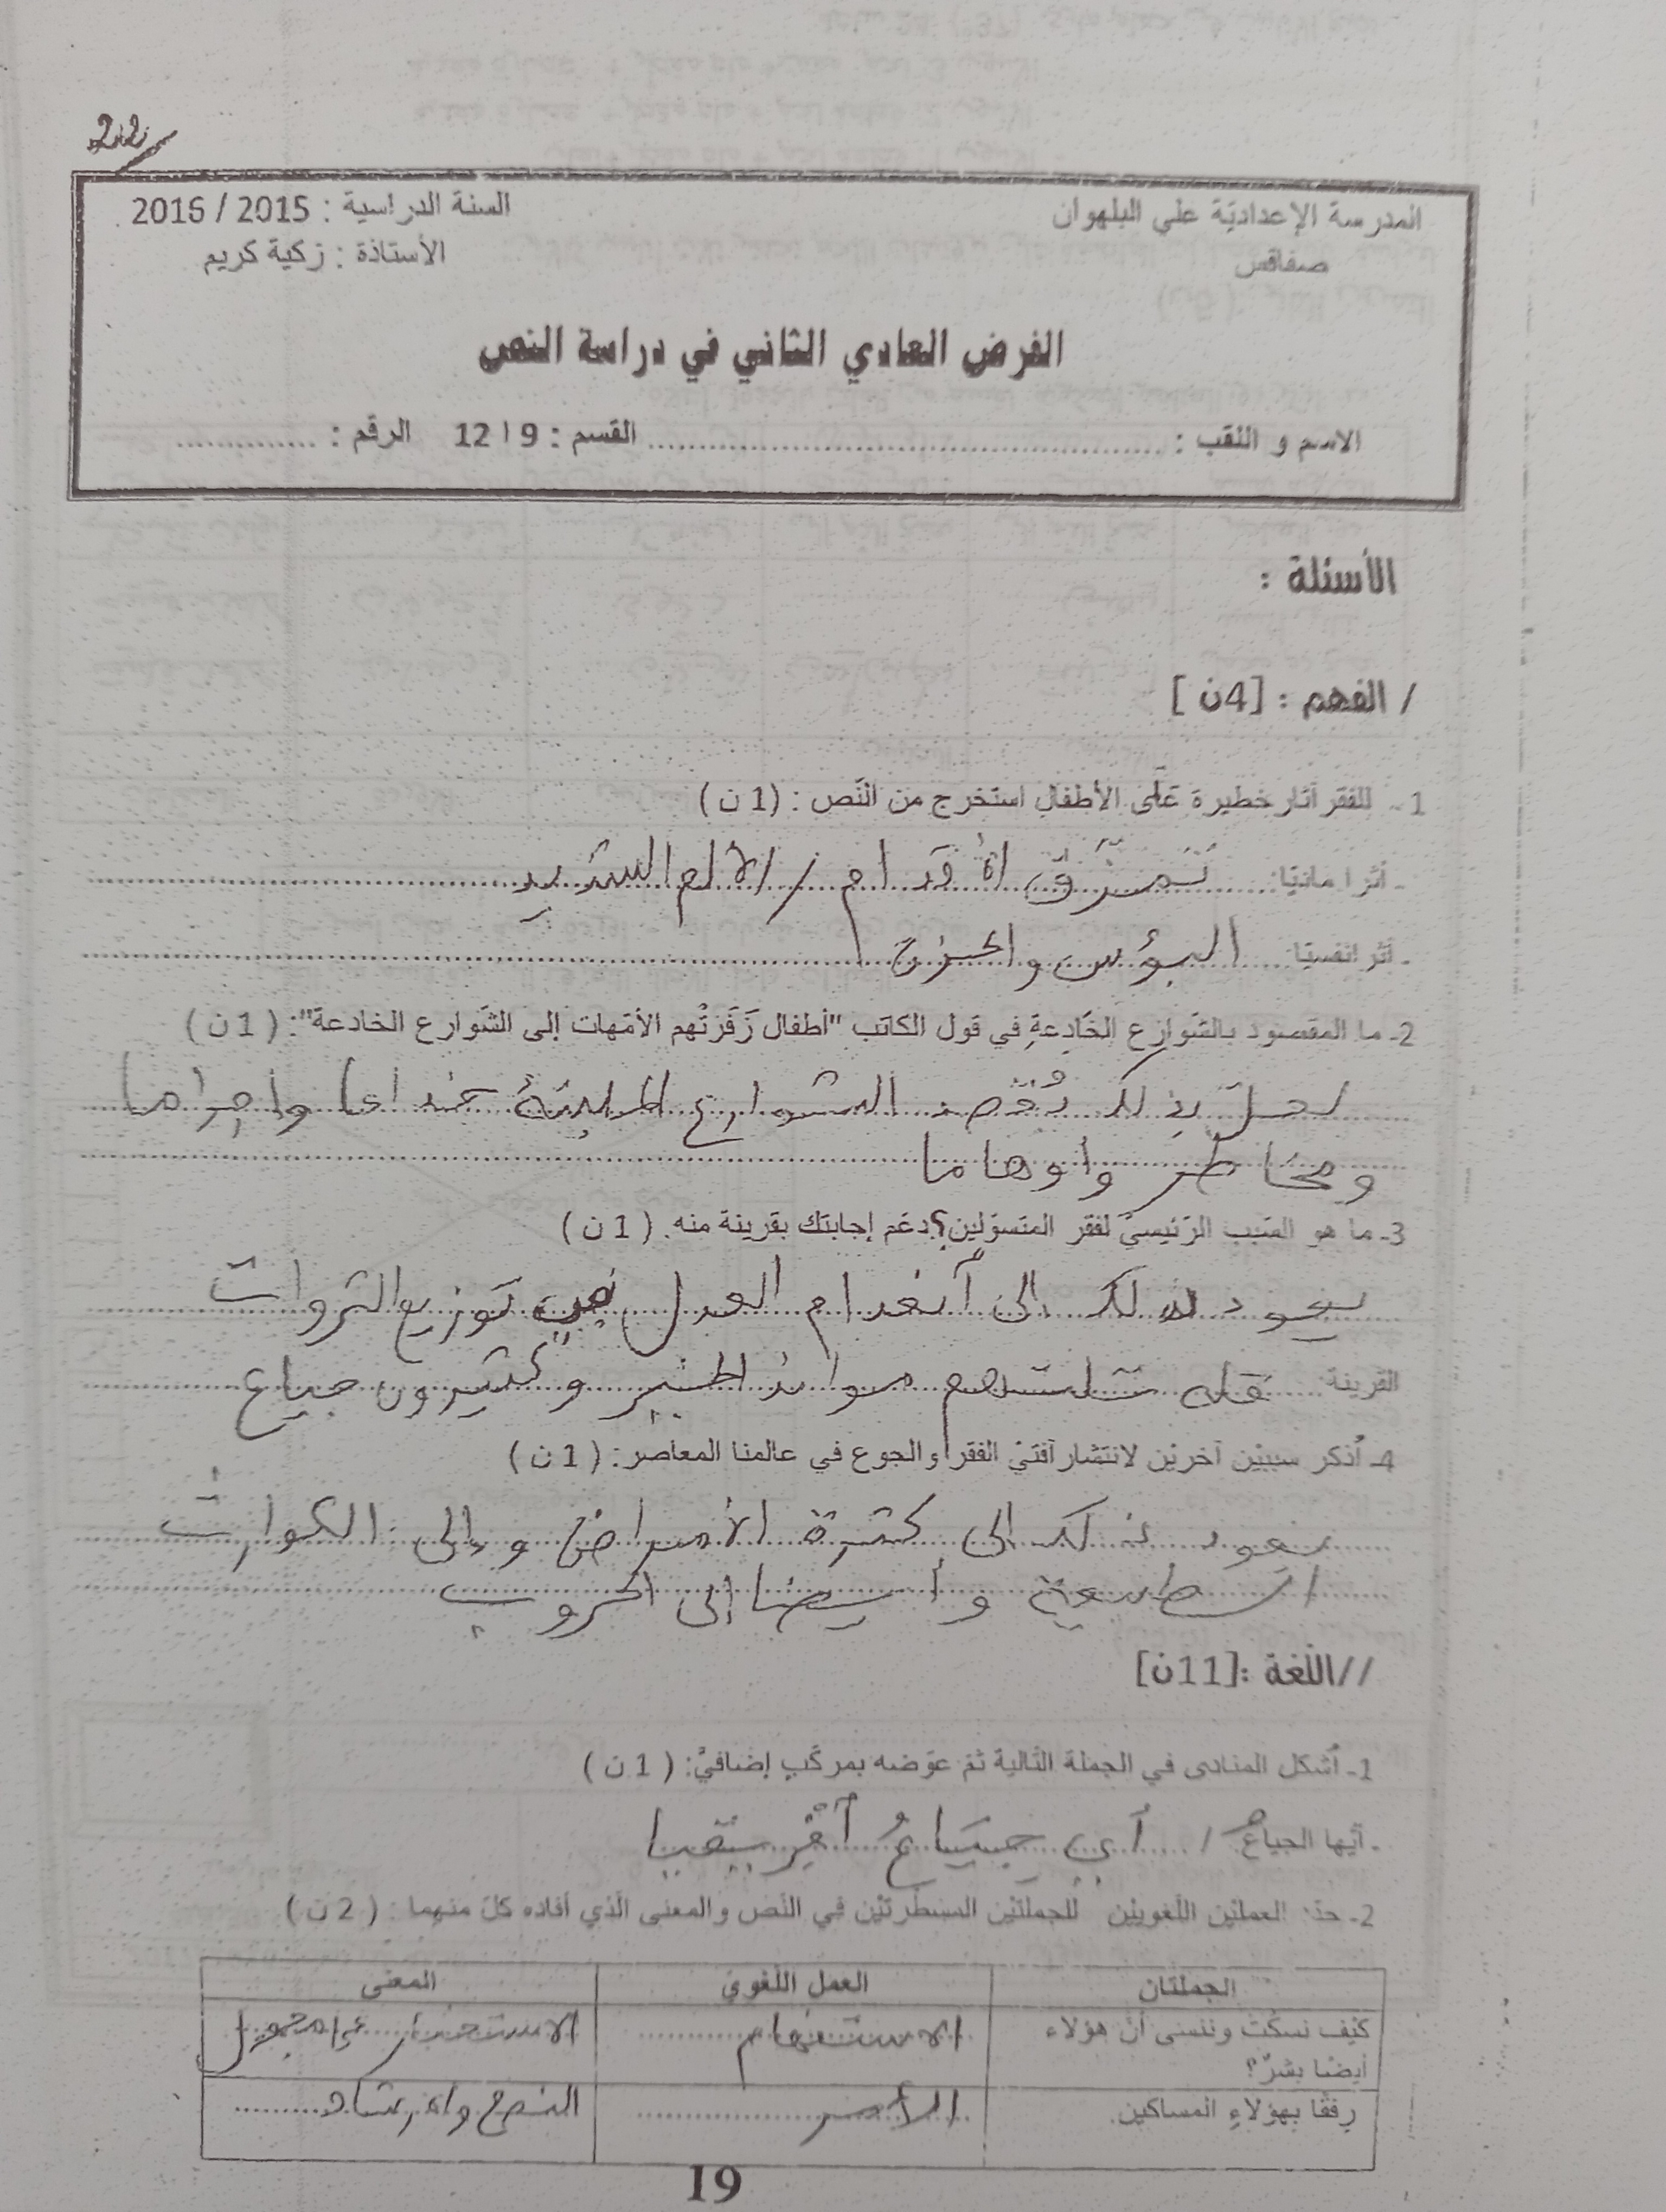 22/
المدرسة الإعدادية علي البلهوان
السنة الدراسية : 2015 / 2016
صفاقس
الأستاذة : زكية كريم
الفرض العادي الثاني في دراسة النص
الاسم و اللقب : ........................ القسم : 9 ا 12 الرقم : ..............
الأسئلة :
/ الفهم : [4ن ]
1- للفقر آثار خطيرة على الأطفال استخرج من النّص : (1 ن )
- أثرا ماديّا: تَمَزُّق الأقدام / الألم الشديد
- أثرا نفسيّا: البؤس والحزن
2- ما المقصود بالشّوارع الخَادِعةِ في قول الكاتب "أطفال زَفَرَتْهم الأمّهات إلى الشّوارع الخادعة": ( 1 ن )
لعلّ بذلك يُقصد الشوارع المليئة خداعا وإجراما
ومخاطر وأوهاما
3- ما هو السّبب الرّئيسيّ لفقر المتسوّلين؟ دعّم إجابتك بقرينة منه. ( 1 ن )
يعود ذلك إلى انعدام العدل في توزيع الثروات
القرينة: قلة تلتهم موائد الخبز وكثيرون جياع
4- أذكر سببيْن آخريْن لانتشار آفتيْ الفقر والجوع في عالمنا المعاصر: ( 1 ن )
يعود ذلك إلى كثرة الأمراض وإلى الكوارث
الطبيعية وأيضا إلى الحروب
//اللّغة :[11ن]
1- أشكل المنادى في الجملة التّالية ثمّ عوّضه بمركّب إضافيّ: ( 1 ن )
- أيّها الجياعُ / أي جِيَاعُ أفْرِيقيا
2- حدّد العمليْن اللّغوييْن للجملتيْن المسطّرتيْن في النّص والمعنى الّذي أفاده كلّ منهما : ( 2 ن )
الجملتان العمل اللّغوي المعنى
كيْف نسكُت وننسى أنّ هؤلاء الاستفهام الاستخبار عن مجهول
أيضا بشرٌ؟
رِفقًا بهؤلاءِ المساكين. الأمر النصح والإرشاد
19